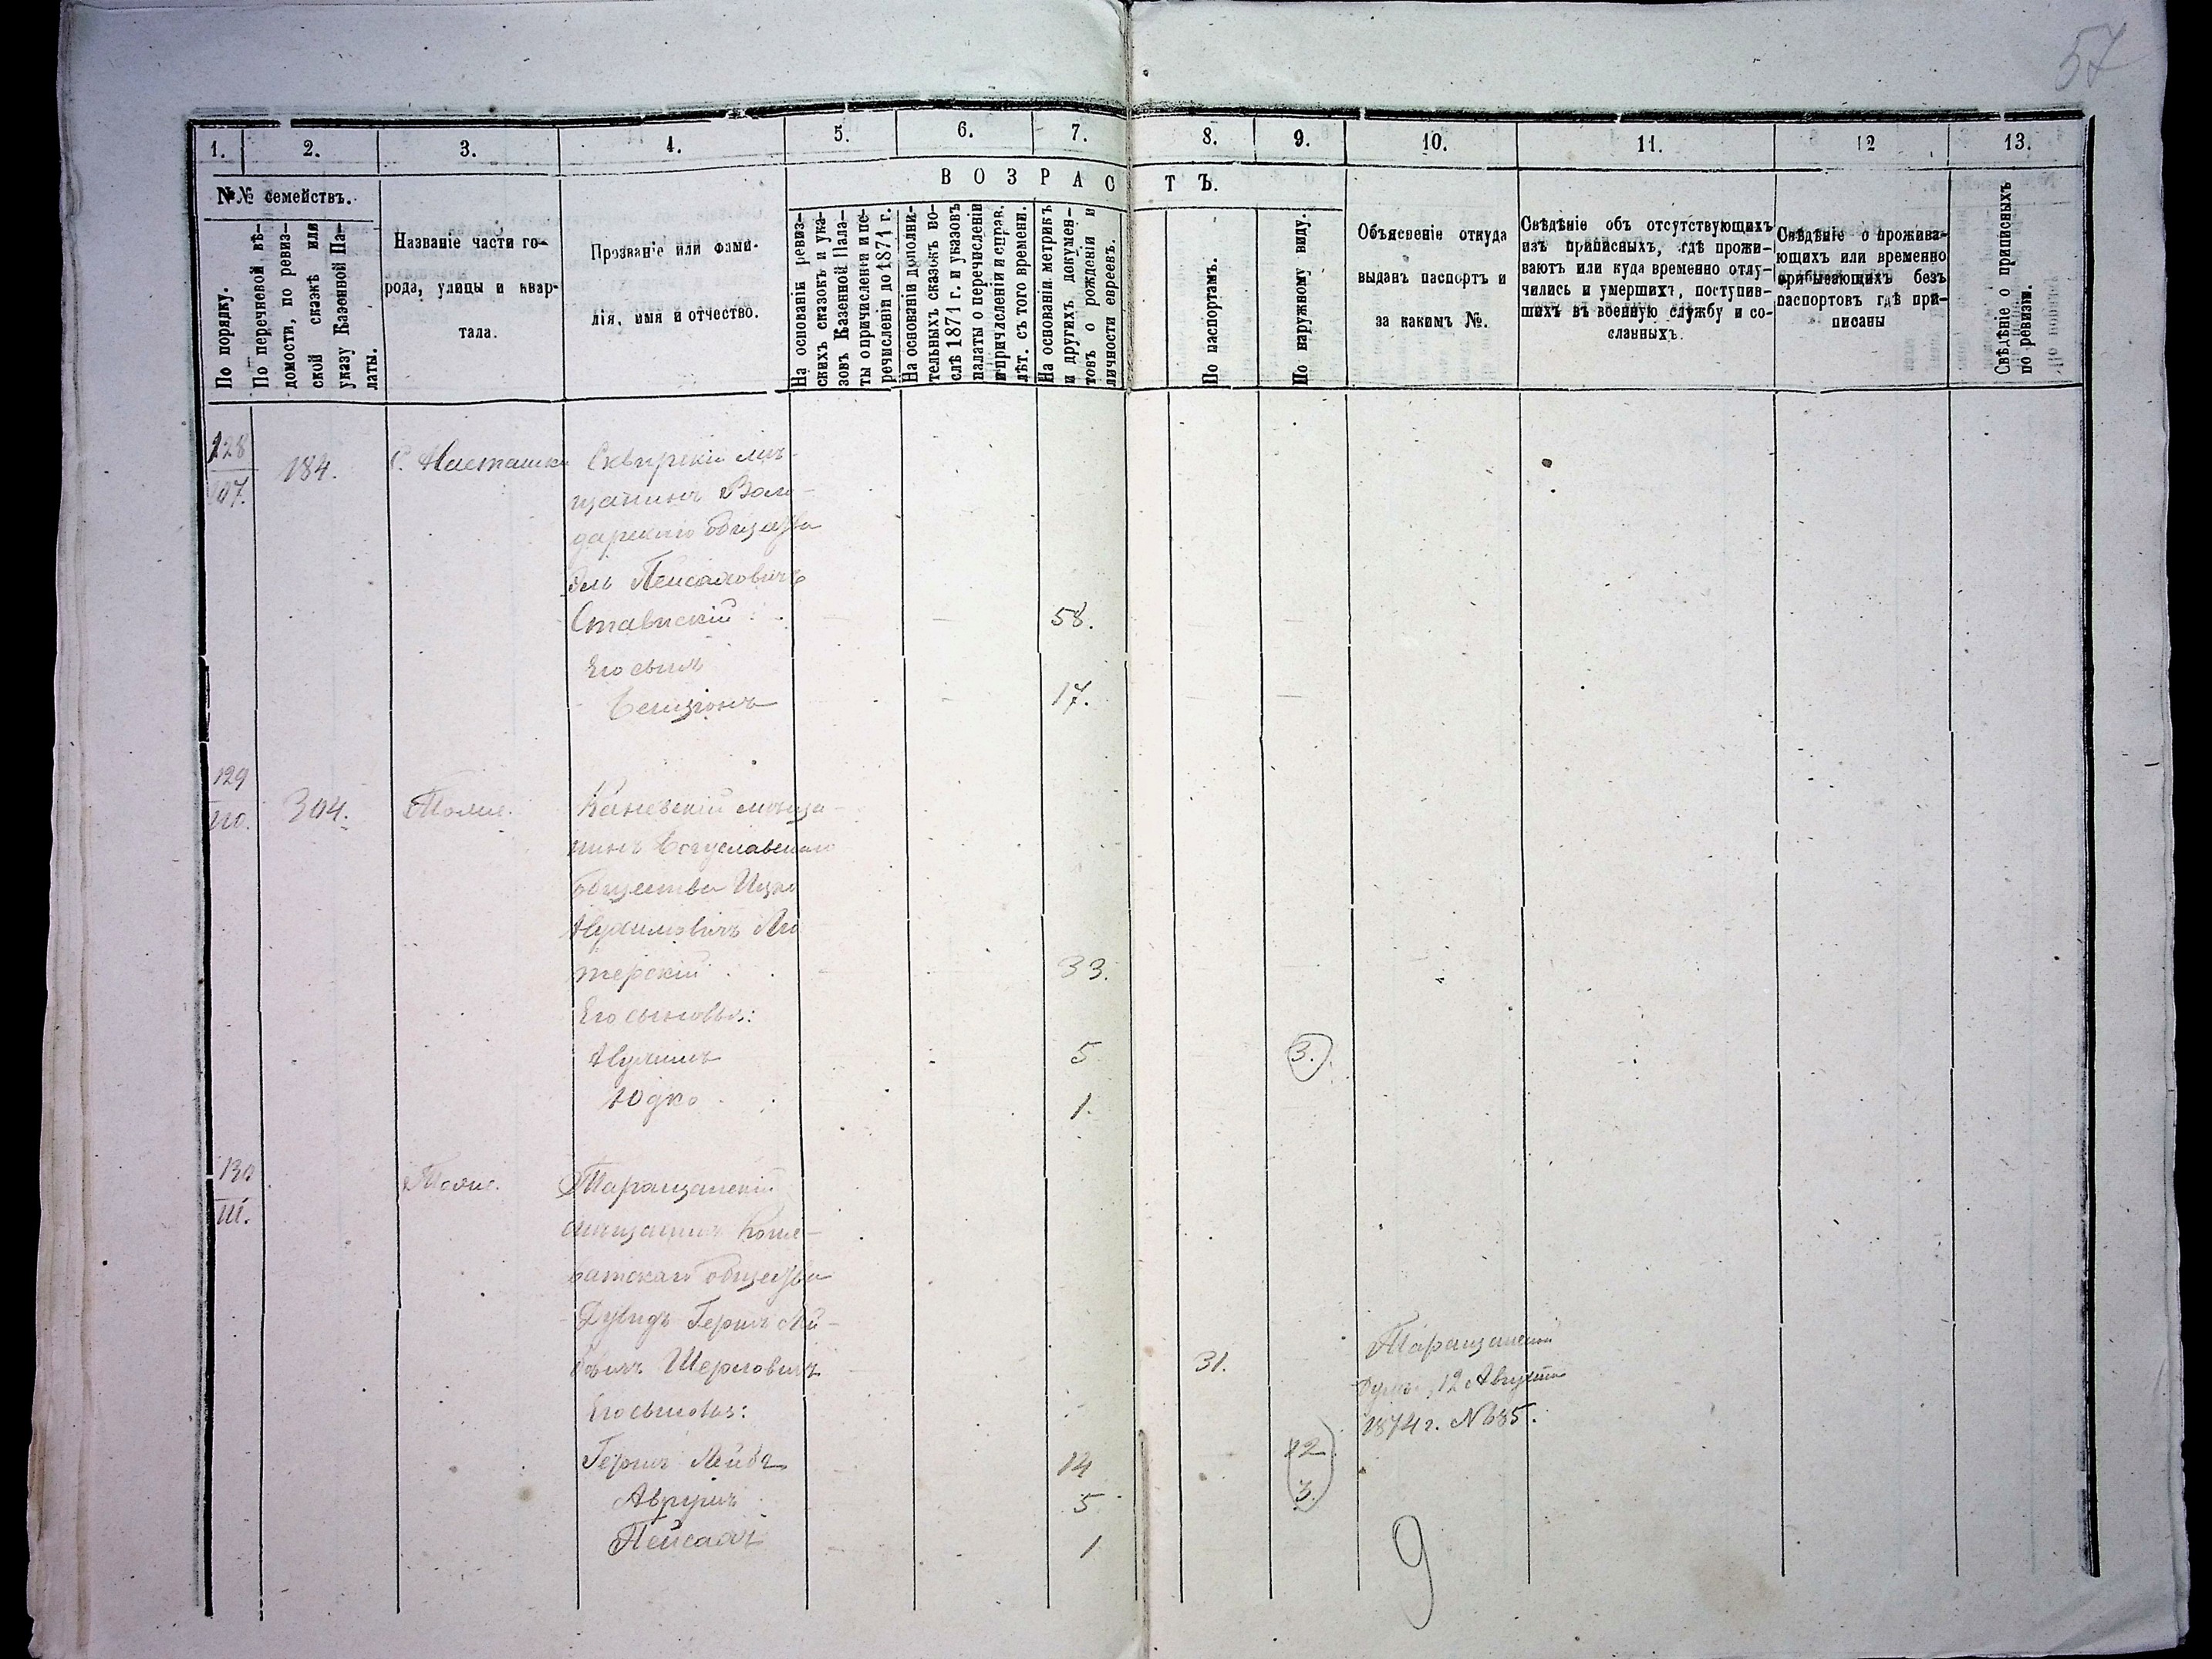 57
1. 2. 3. 4. 5. 6. 7. 8. 9. 10. 11. 12 13.
№№ семействъ.
По порядку.
По перечневой вѣ-
домости, по ревиз-
ской сказкѣ или
указу Казенной Па-
латы.
Названіе части го-
рода, улицы и квар-
тала.
Прозваніе или фами-
лія, имя и отчество.
ВОЗРАСТЪ.
На основаніи ревиз-
скихъ сказокъ и ука-
зовъ Казенной Пала-
ты о причисленіи и пе-
речисленіи до 1871 г.
На основаніи дополни-
тельныхъ сказокъ по-
слѣ 1871 г. и указовъ
палаты о перечисленіи
и причисленіи и справ.
лѣт. съ того времени.
На основаніи метрикъ
и другихъ докумен-
товъ о рожденіи и
личности евреевъ.
По паспортамъ.
По наружному виду.
Объясненіе откуда
выданъ паспортъ и
за какимъ №.
Свѣдѣніе объ отсутствующихъ
изъ приписныхъ, гдѣ прожи-
ваютъ или куда временно отлу-
чились и умершихъ, поступив-
шихъ въ военную службу и со-
сланныхъ.
Свѣдѣніе о прожива-
ющихъ или временно
прибывающихъ безъ
паспортовъ гдѣ при-
писаны
Свѣдѣніе о приписныхъ
по ревизіи.
128
107.
184.
С. Насташка
Сквирскій мѣ-
щанинъ Воло-
дарскаго общества
Эль Пейсаховичъ
Ставискій 58.
Его сынъ
Бенціонъ 17.
129
110.
304.
Тоже.
Каневскій мѣща-
нинъ Богуславскаго
общества Ицко
Нухимовичъ
терскій 33.
Его сыновья:
Нухимъ 5 3.
Юдко 1.
130
111.
Тоже.
Таращанскій
мѣщанинъ Коше-
ватскаго общества
Дувидъ Гершъ Лей-
бовичъ 31.
Таращанской
Думы 12 Августа
1874 г. №
Его сыновья:
Гершъ Лейбъ 14 12
Аврумъ 5 3.
Пейсахъ 1
9